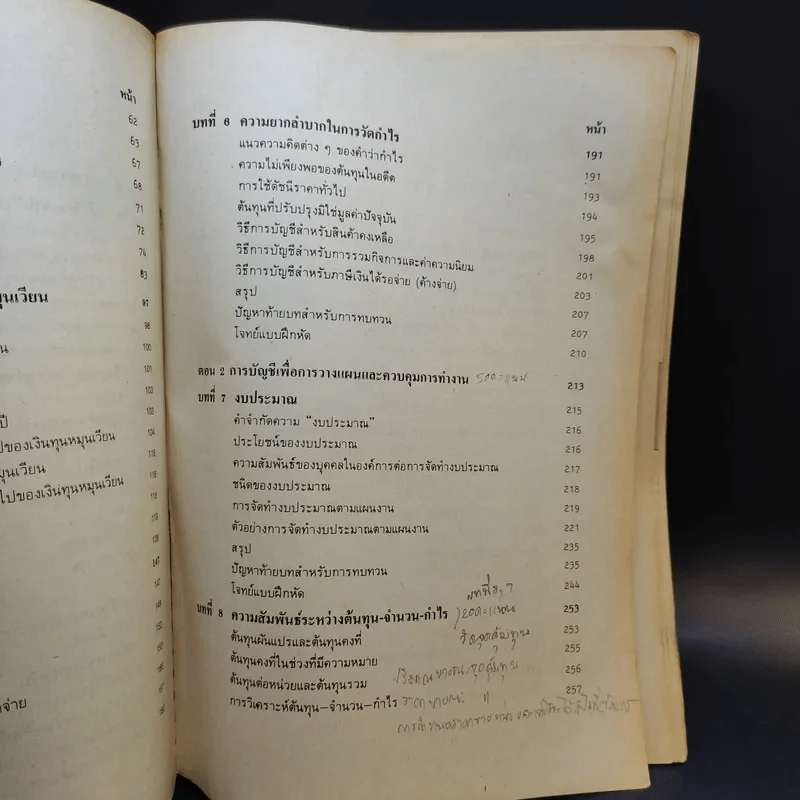 หน้า
62
63
67
68
71
72
74
83
ทุนเวียน
97
98
100
101
103
ปี
103
104
ปของเงินทุนหมุนเวียน
116
มุนเวียน
116
ไปของเงินทุนหมุนเวียน
118
118
119
126
147
147
149
150
150
จ่าย
บทที่ 6 ความยากลำบากในการวัดกำไร หน้า
แนวความคิดต่าง ๆ ของคำว่ากำไร 191
ความไม่เพียงพอของต้นทุนในอดีต 191
การใช้ดัชนีราคาทั่วไป 193
ต้นทุนที่ปรับปรุงมิใช่มูลค่าปัจจุบัน 194
วิธีการบัญชีสำหรับสินค้าคงเหลือ 195
วิธีการบัญชีสำหรับการรวมกิจการและค่าความนิยม 198
วิธีการบัญชีสำหรับภาษีเงินได้รอจ่าย (ค้างจ่าย) 201
สรุป 203
ปัญหาท้ายบทสำหรับการทบทวน 207
โจทย์แบบฝึกหัด 207
210
ตอน 2 การบัญชีเพื่อการวางแผนและควบคุมการทำงาน 213
บทที่ 7 งบประมาณ 215
คำจำกัดความ "งบประมาณ" 216
ประโยชน์ของงบประมาณ 216
ความสัมพันธ์ของบุคคลในองค์การต่อการจัดทำงบประมาณ 217
ชนิดของงบประมาณ 218
การจัดทำงบประมาณตามแผนงาน 219
ตัวอย่างการจัดทำงบประมาณตามแผนงาน 221
สรุป 235
ปัญหาท้ายบทสำหรับการทบทวน 235
โจทย์แบบฝึกหัด 244
บทที่ 8 ความสัมพันธ์ระหว่างต้นทุน-จำนวน-กำไร 253
ต้นทุนผันแปรและต้นทุนคงที่ 253
ต้นทุนคงที่ในช่วงที่มีความหมาย 255
ต้นทุนต่อหน่วยและต้นทุนรวม 256
การวิเคราะห์ต้นทุน-จำนวน-กำไร 257